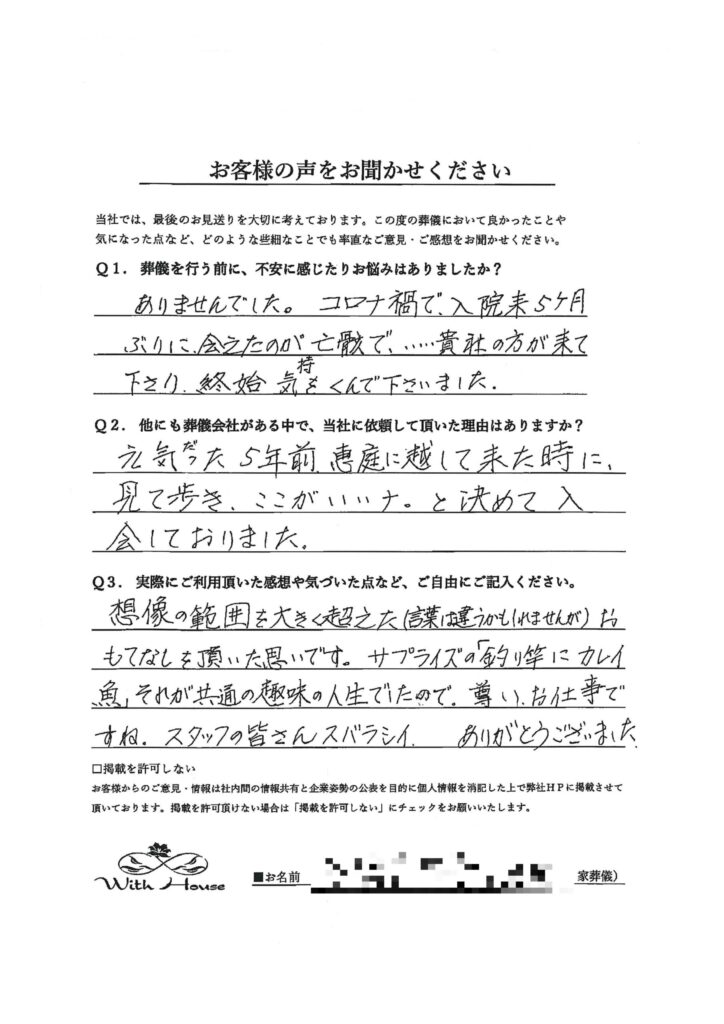 お客様の声をお聞かせください
当社では、最後のお見送りを大切に考えております。この度の葬儀において良かったことや
気になった点など、どのような些細なことでも率直なご意見・ご感想をお聞かせください。
Q1. 葬儀を行う前に、不安に感じたりお悩みはありましたか?
ありませんでした。コロナ禍で、入院来5ケ月
ぶりに、会えたのが亡骸で、……貴社の方が来て
下さり、終始気持をくんで下さいました。
Q2. 他にも葬儀会社がある中で、当社に依頼して頂いた理由はありますか?
元気だった5年前、恵庭に越して来た時に、
見て歩き、ここがいいナ。と決めて入
会しておりました。
Q3. 実際にご利用頂いた感想や気づいた点など、ご自由にご記入ください。
想像の範囲を大きく超えた(言葉は違うかもしれませんが)お
もてなしを頂いた思いです。サプライズの「釣り竿にカレイ
魚」それが共通の趣味の人生でしたので、尊い、お仕事で
すね。スタッフの皆さんスバラシイ、ありがとうございました
□掲載を許可しない
お客様からのご意見・情報は社内間の情報共有と企業姿勢の公表を目的に個人情報を消記した上で弊社HPに掲載させて
頂いております。掲載を許可頂けない場合は「掲載を許可しない」にチェックをお願いいたします。
With House
■お名前 家葬儀)